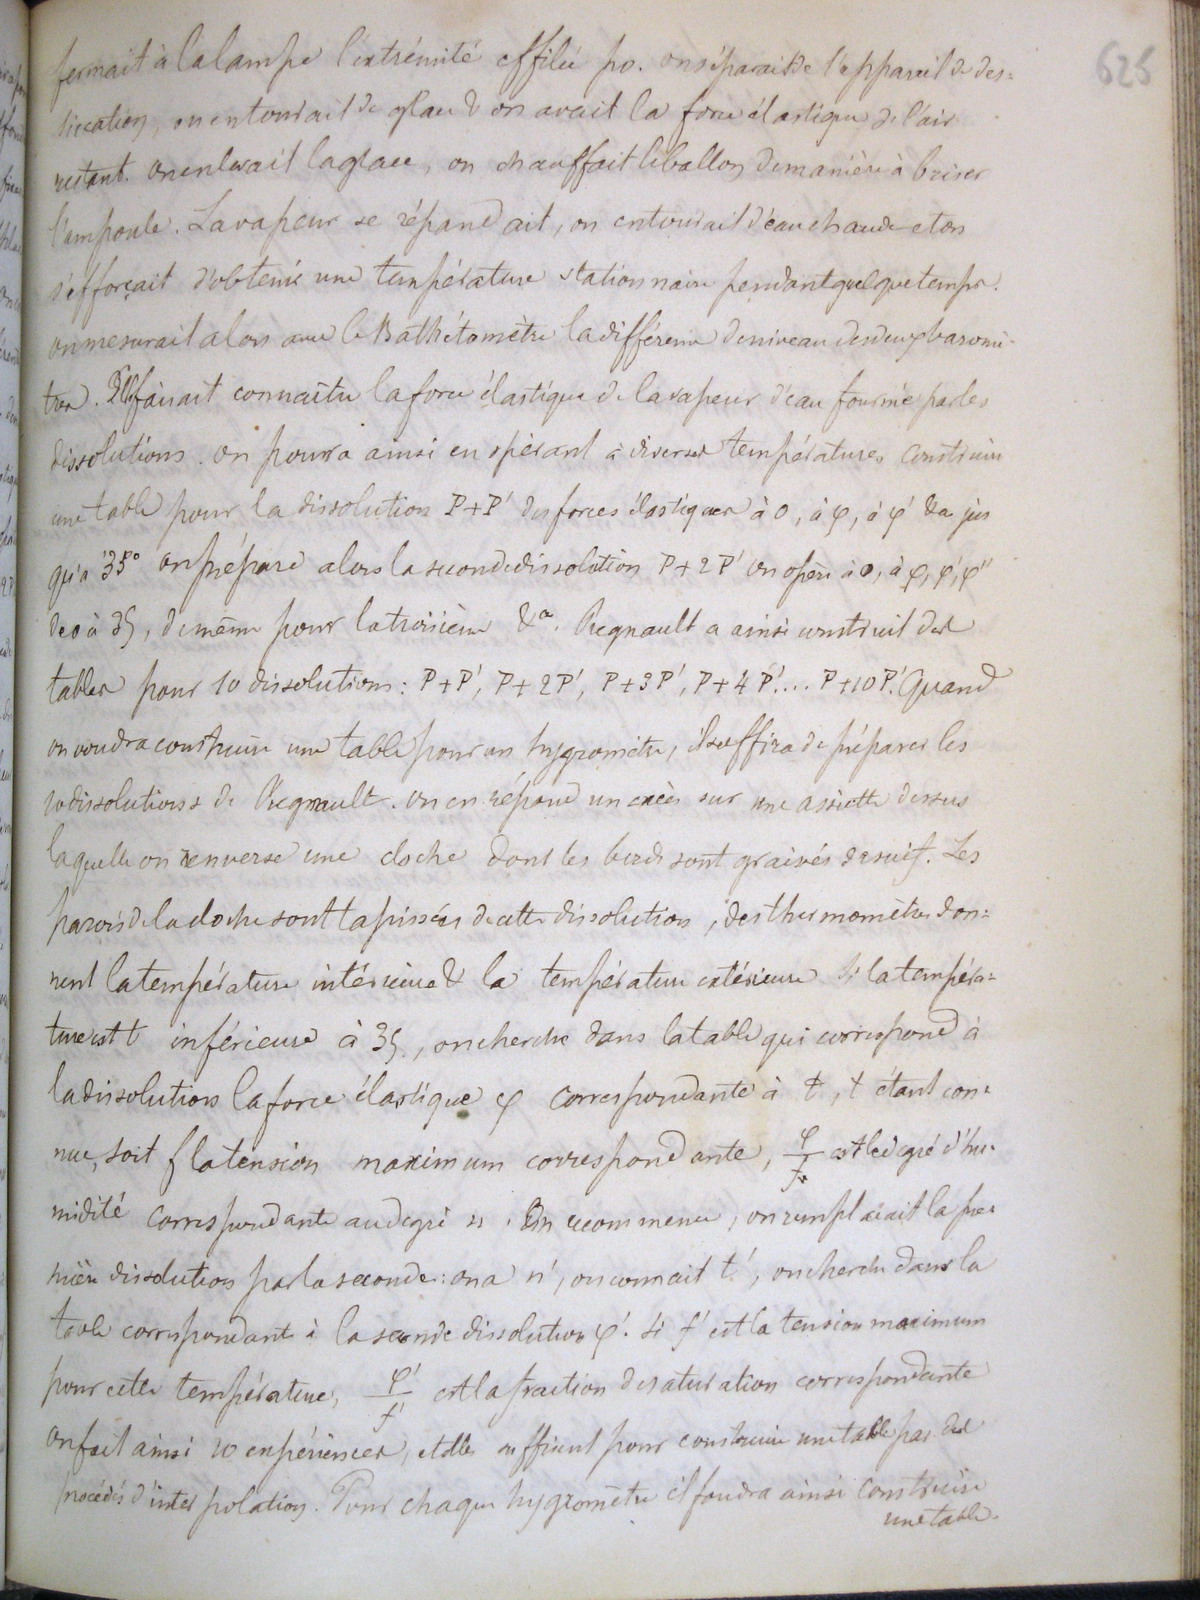 625
fermait à la lampe l'extrémité effilée po. on séparait de l'appareil de des=
siccation, on entourait de glace & on avait la force élastique de l'air
restant. on enlevait la glace, on chauffait le ballon de manière à briser
l'ampoule. La vapeur se répandait, on entourait d'eau chaude et on
s'efforçait d'obtenir une température stationnaire pendant quelque temps.
on mesurait alors avec le Kathétomètre la différence de niveau des deux baromè-
tres. Elle faisait connaître la force élastique de la vapeur d'eau fournie par les
dissolutions. on pourra ainsi en opérant à diverses températures construire
une table pour la dissolution P+P' des forces élastiques à 0, à φ, à φ' &a jus
qu'à 35° on prépare alors la seconde dissolution P+2P' on opère à 0, à φ, φ', φ''
de 0 à 35, de même pour la troisième &a. Regnault a ainsi construit des
tables pour 10 dissolutions: P+P', P+2P', P+3P', P+4P'.... P+10P'. Quand
on voudra construire une table pour un hygromètre, il suffira de préparer les
10 dissolutions de Regnault. on en répand un excès sur une assiette dessus
laquelle on renverse une cloche dont les bords sont graissés de suif. Les
parois de la cloche sont tapissées de cette dissolution, des thermomètres don=
nent la température intérieure & la température extérieure Si la tempéra=
ture est t inférieure à 35, on cherche dans la table qui correspond à
la dissolution la force élastique φ correspondante à t, t étant con=
nue, soit f la tension maximum correspondante, φ/f est le degré d'hu-
midité correspondante au degré n. On recommence, on remplaçait la pre
mière dissolution par la seconde: on a n', on connait t', on cherche dans la
table correspondante à la seconde dissolution φ'. Si f' est la tension maximum
pour cette température, φ'/f' est la fraction de saturation correspondante
on fait ainsi 10 expériences, et elles suffisent pour construire une table par des
procédés d'interpolation. Pour chaque hygromètre il faudra ainsi construire
une table.